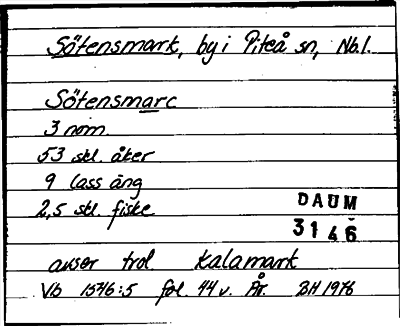 Sötensmark, by i Piteå sn, Nb.l.
Sötensmarc
3 nom.
53 skl. åker
9 lass äng
2,5 skl. fiske
DAUM
3146
avser trol. Kalamark
Vb 1546:5 fol. 44 v. År. BH 1976